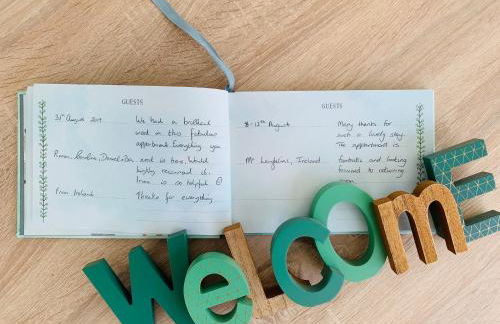 GUESTS
31st August
We had a brilliant
week in this fabulous
appartment. Everything you
need is here, Would
highly recommend
is so helpful
From Ireland
Thanks for everything
GUESTS
8-12th August
Many thanks for
such a lovely stay.
The appartment is
Mc Laughlins, Ireland
fantastic and looking
forward to returning
WELCOME